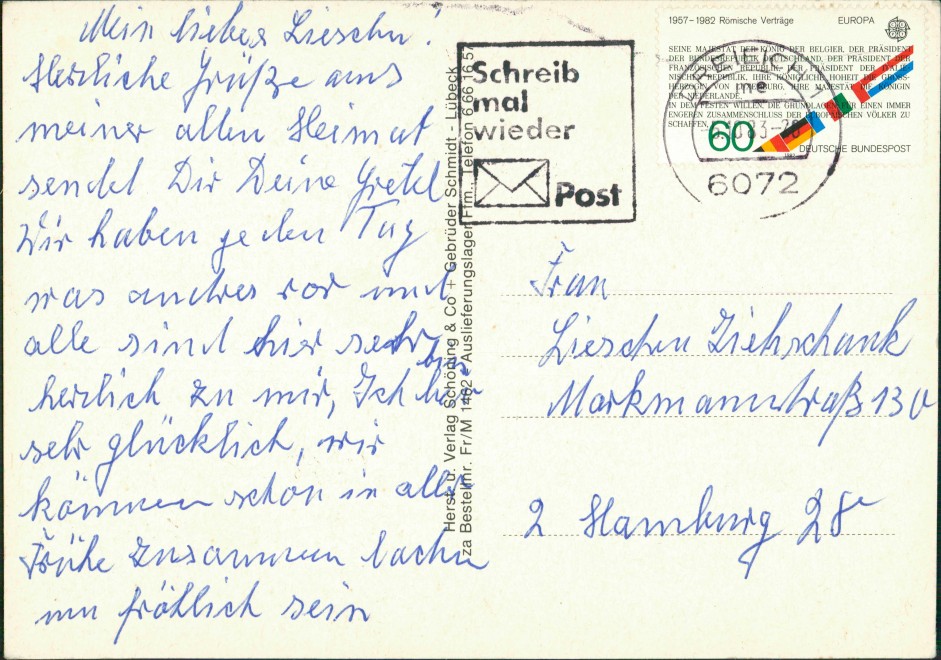 Mein liebes Lieschen!
Herzliche Grüße aus
meiner alten Heimat
sendet Dir Deine Gretel
Wir haben jeden Tag
was andres vor und
alle sind hier sehr
herzlich zu mir, Ich bin
sehr glücklich, wir
können schon in aller
Frühe zusammen lachen
un fröhlich sein
Herst. u. Verlag Schöning & Co + Gebrüder Schmidt - Lübeck
za Bestellnr. Fr/M 1462 - Auslieferungslager Ffm., Telefon 6 66 16 57
Schreib
mal
wieder
Post
1957–1982 Römische Verträge EUROPA
SEINE MAJESTÄT DER KÖNIG DER BELGIER, DER PRÄSIDENT
DER BUNDESREPUBLIK DEUTSCHLAND, DER PRÄSIDENT DER
FRANZÖSISCHEN REPUBLIK, DER PRÄSIDENT DER ITALIE-
NISCHEN REPUBLIK, IHRE KÖNIGLICHE HOHEIT DIE GROSS-
HERZOGIN VON LUXEMBURG, IHRE MAJESTÄT DIE KÖNIGIN
DER NIEDERLANDE,
IN DEM FESTEN WILLEN, DIE GRUNDLAGEN FÜR EINEN IMMER
ENGEREN ZUSAMMENSCHLUSS DER EUROPÄISCHEN VÖLKER ZU
SCHAFFEN,
60
DEUTSCHE BUNDESPOST
me
83
6072
Frau
Lieschen Ziehschank
Markmannstraß 130
2 Hamburg 28